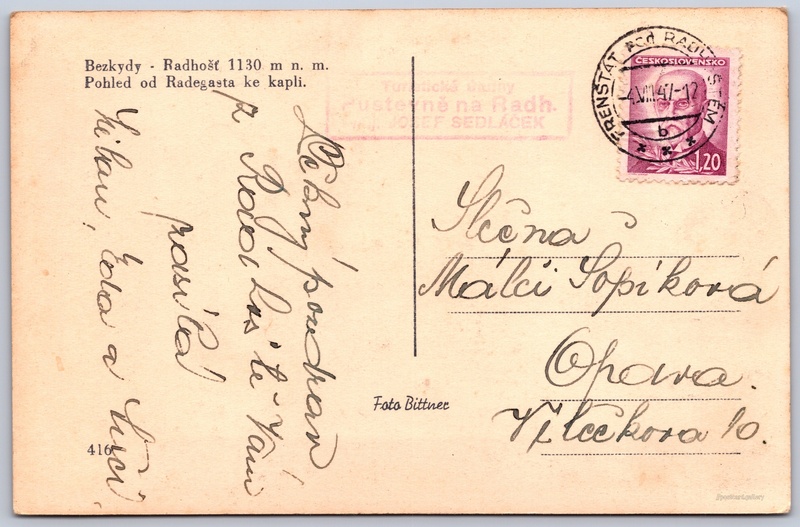 Bezkydy - Radhošť 1130 m n. m.
Pohled od Radegasta ke kapli.
Turistické útulny
Pustevně na Radh.
JOSEF SEDLÁČEK
FRENŠTÁT pod RADHOŠTĚM
4.VIII.47-12
b
ČESKOSLOVENSKO
1,20
pozdrav
z Radhoště Vám
posílá
Eda a
Slečna
Málči Sopíková
Opava.
Vlčkova 10.
Foto Bittner
416